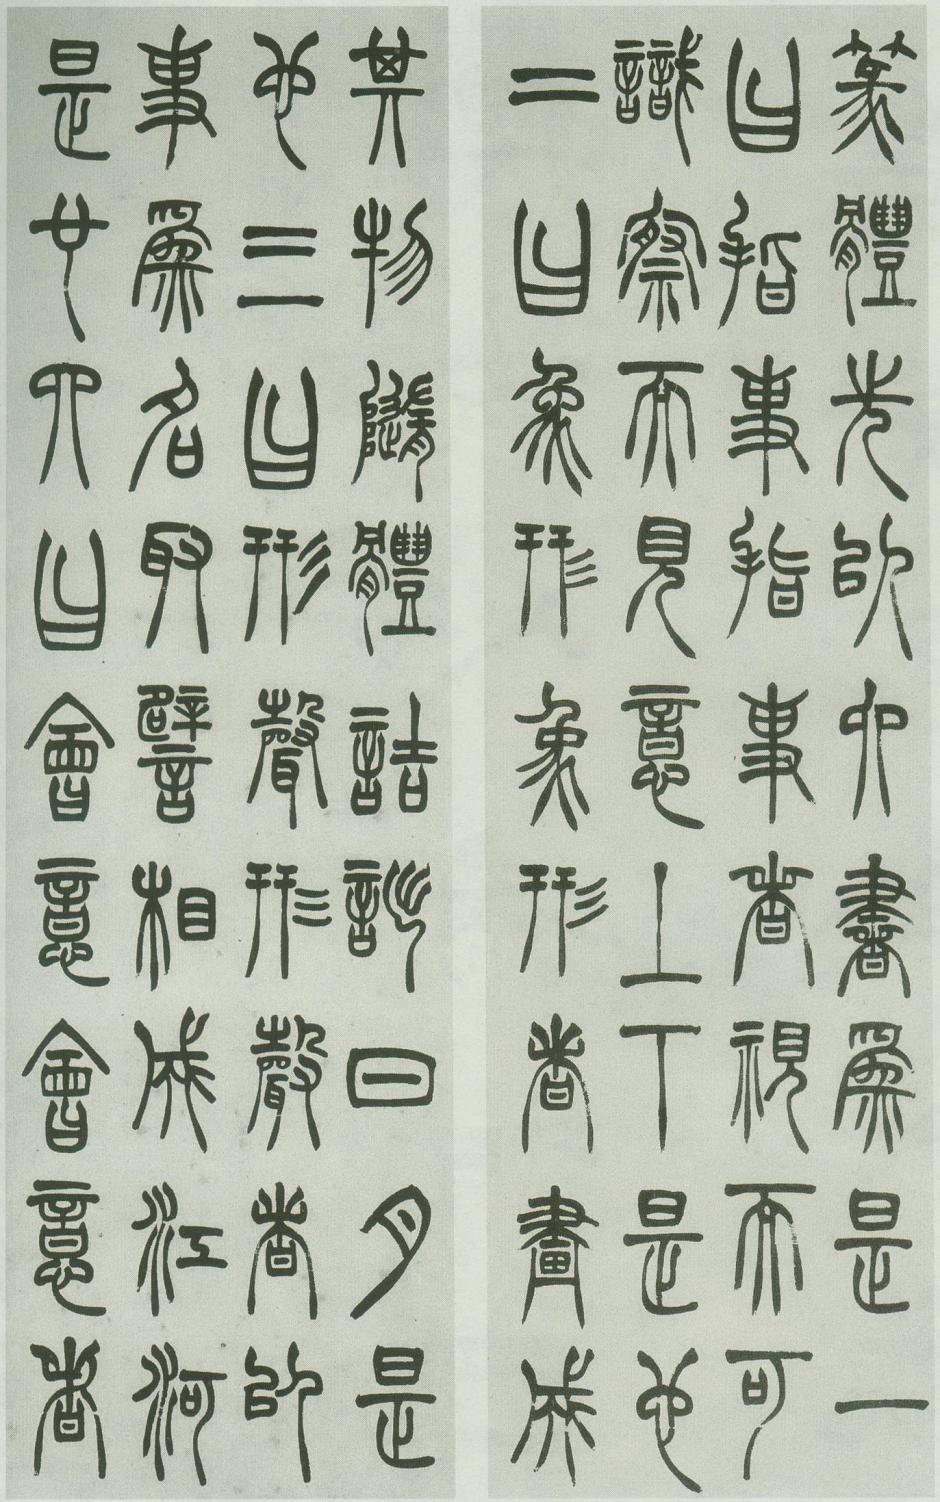 篆體先以六書爲是一
曰指事指事者視而可
識察而見意上下是也
二曰象形象形者畫成
其物隨體詰詘日月是
也三曰形聲形聲者以
事爲名取譬相成江河
是也四曰會意會意者